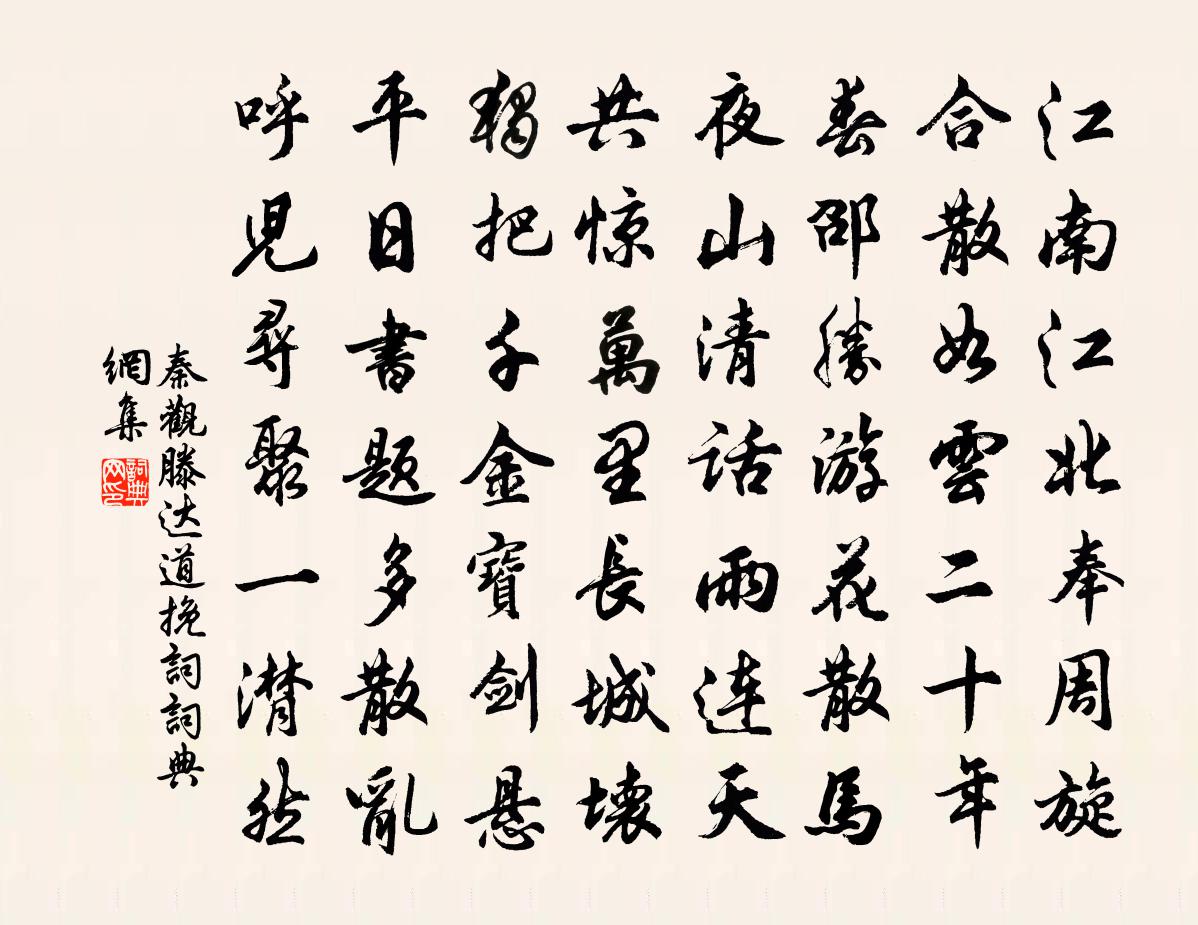 江南江北奉周旋
合散如雲二十年
春邵勝游花散馬
夜山清话雨连天
共惊萬里長城壊
獨把千金寶剑悬
平日書题多散亂
呼児尋聚一潸然
秦觀滕达道挽詞詞典
網集
詞典
网印